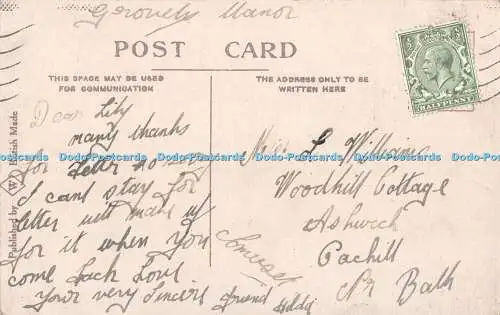 Manor
POST CARD
THIS SPACE MAY BE USED
FOR COMMUNICATION
THE ADDRESS ONLY TO BE
WRITTEN HERE
HALFPENNY
Published by (W) British Made
Dear Lily
many thanks
for letter no
I cant stay for
letter will make up
for it when you
come back Love
Your very Sincire friend
Miss L Williams
Woodhill Cottage
Ashwick
Oachill
Nr Bath
Somerset
Dodo-Postcards Dodo-Postcards Dodo-Postcards Dodo-Postcards Dodo-Postcards